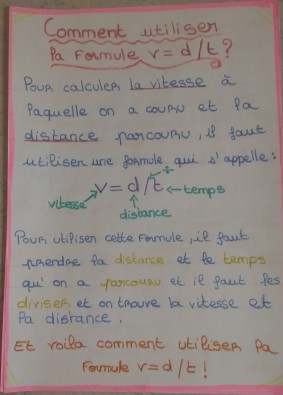 Comment utiliser
la Formule v = d/t?
Pour calculer la vitesse à
laquelle on a couru et la
distance parcouru, il faut
utiliser une formule qui s'appelle :
÷
v = d/t ← temps
vitesse
distance
Pour utiliser cette Formule, il faut
prendre la distance et le temps
qu'on a parcouru et il faut les
diviser et on trouve la vitesse et
la distance.
Et voila comment utiliser la
Formule v = d/t !